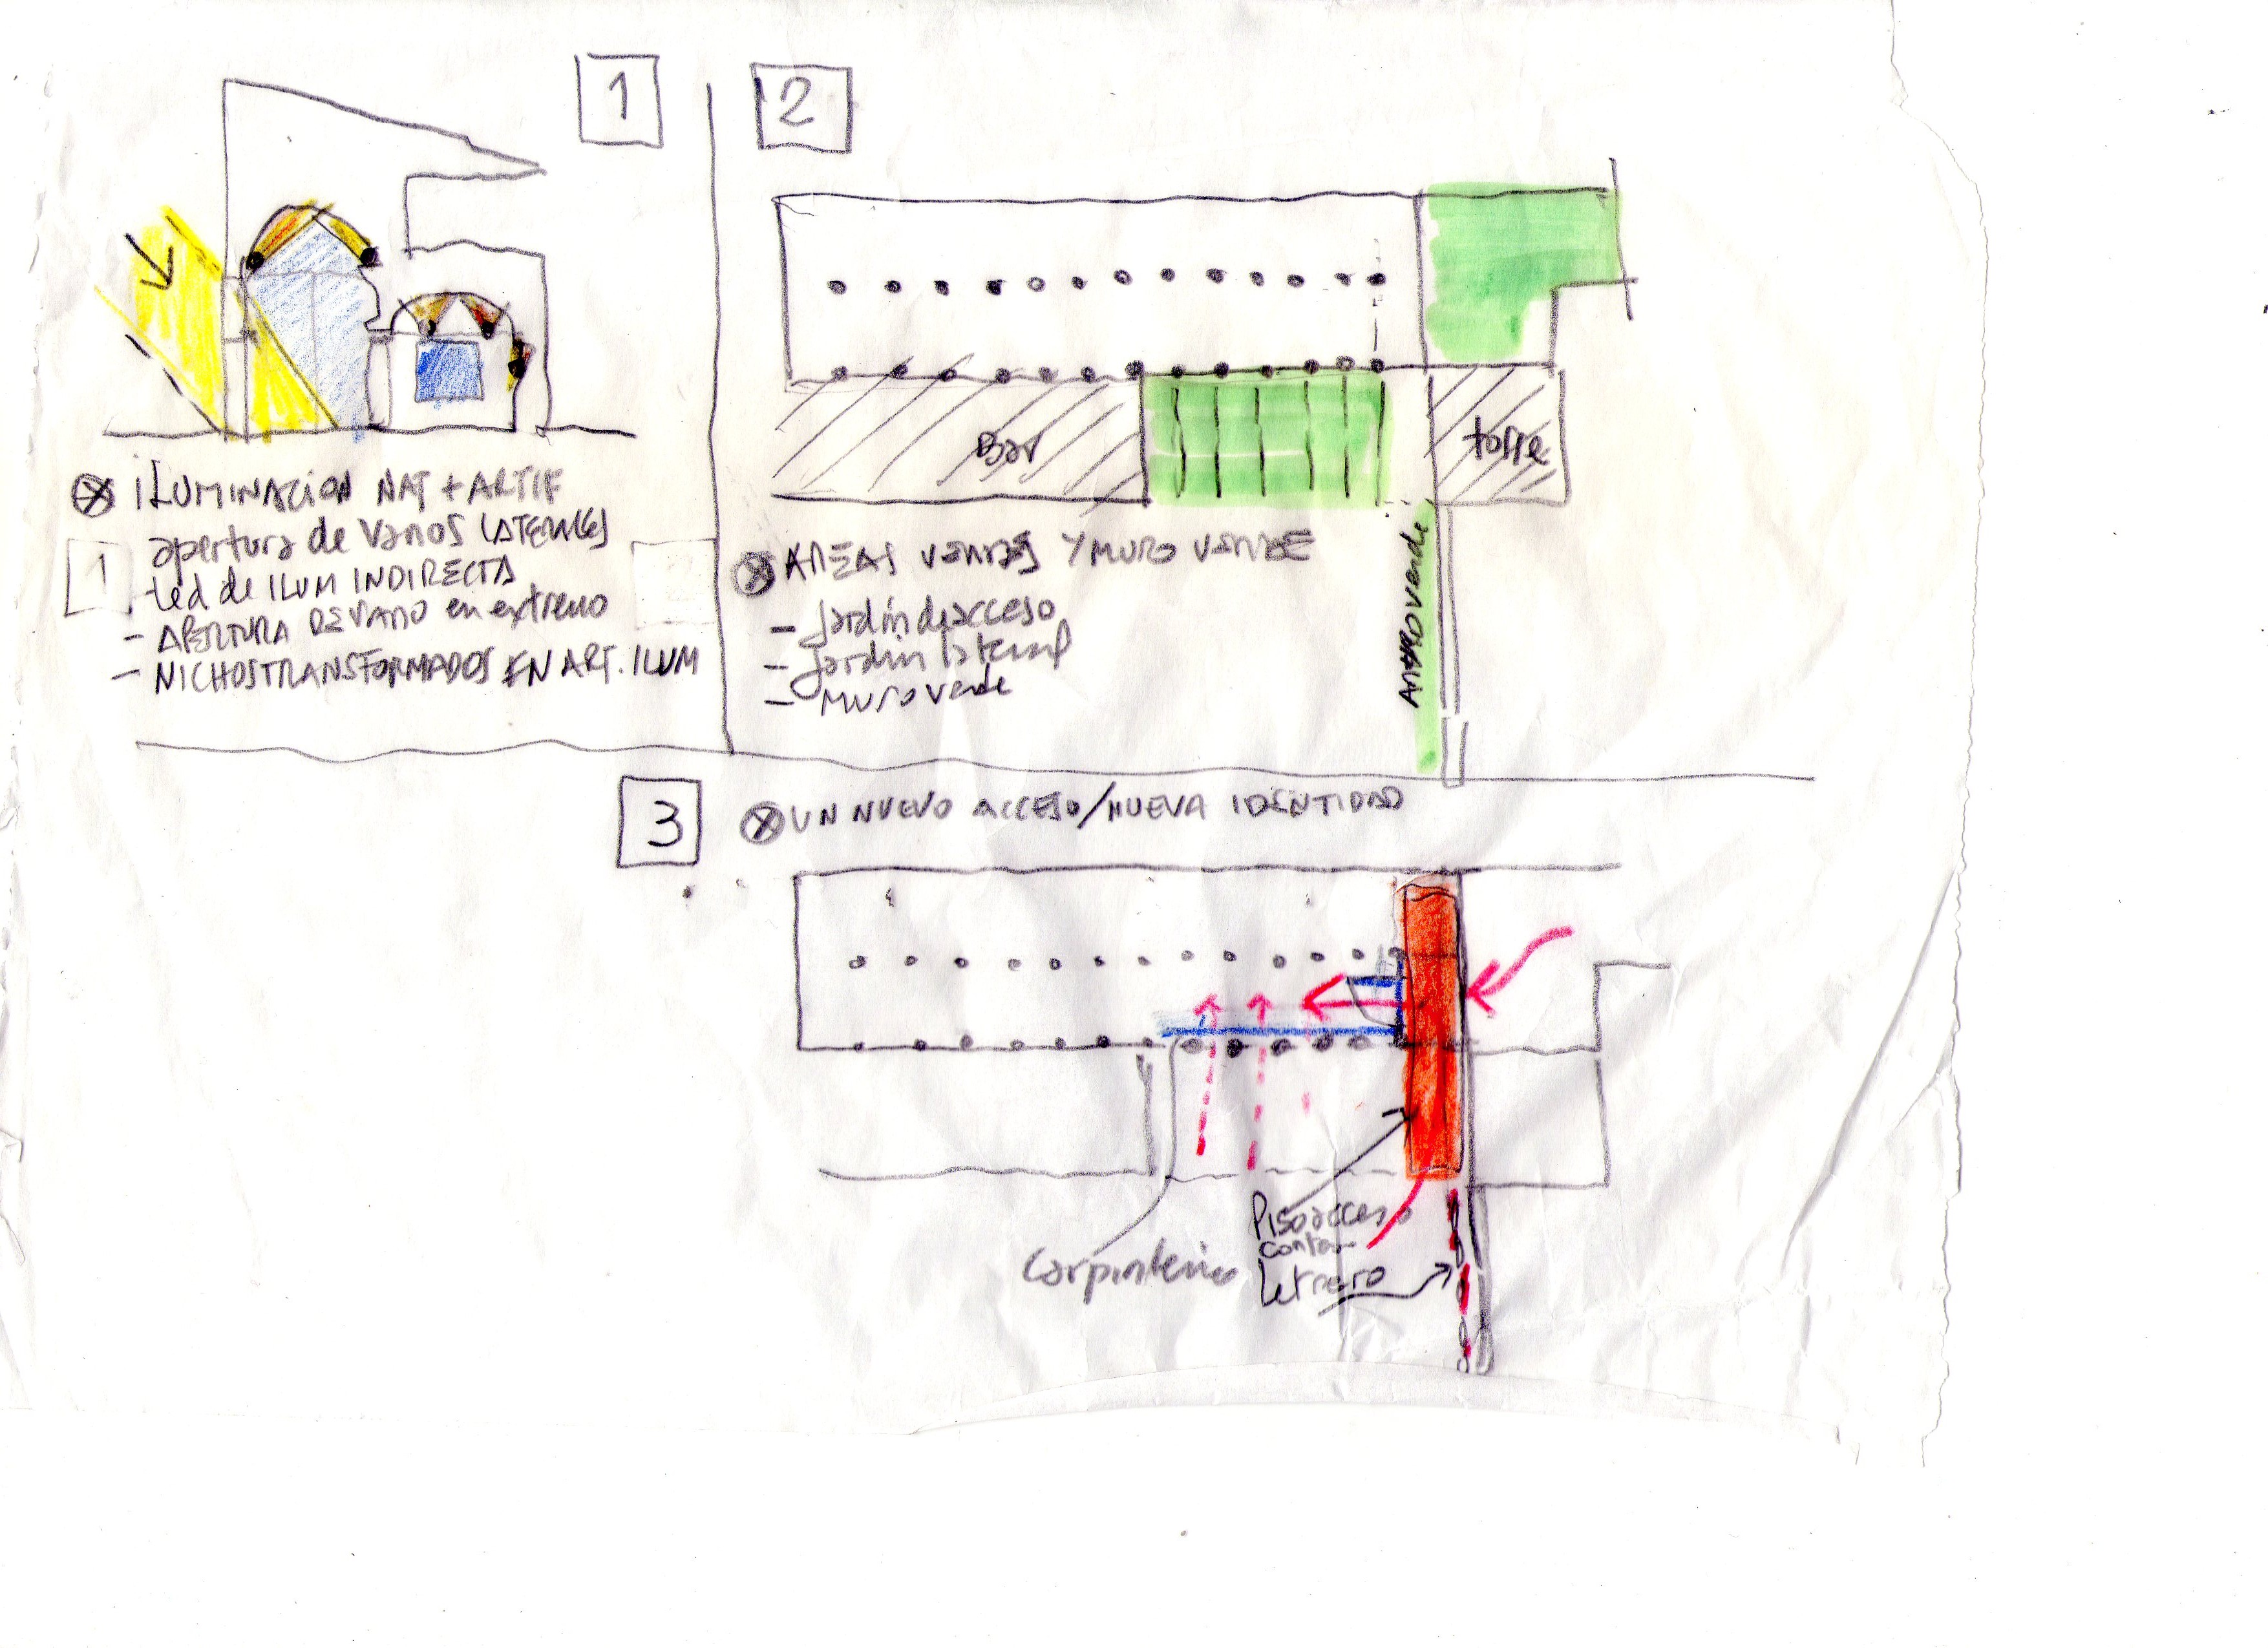 1
ILUMINACION NAT + ARTIF
1
apertura de vanos LATERALES
- Led de ILUM INDIRECTA
- APERTURA DE VANO en extremo
- NICHOS TRANSFORMADOS EN ART. ILUM
2
Bar
torre
AREAS VERDES Y MURO VERDE
2
- Jardin de acceso
- Jardin lateral
- MURO verde
verde
3
UN NUEVO ACCESO/NUEVA IDENTIDAD
Piso acceso
Carpinteria
Letrero